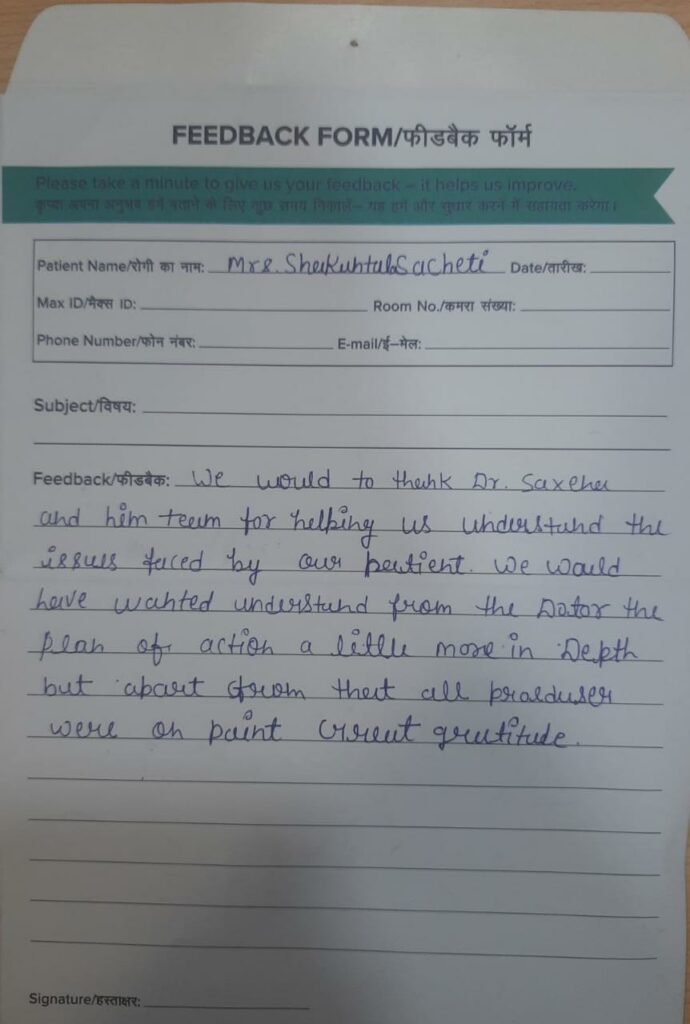 FEEDBACK FORM/फीडबैक फॉर्म
Please take a minute to give us your feedback – it helps us improve.
कृपया अपना अनुभव हमें बताने के लिए कुछ समय निकालें– यह हमें और सुधार करने में सहायता करेगा।
Patient Name/रोगी का नाम: Mrs. Shakuhtala Sacheti Date/तारीख:
Max ID/मैक्स ID: Room No./कमरा संख्या:
Phone Number/फोन नंबर: E-mail/ई–मेल:
Subject/विषय:
Feedback/फीडबैक: We would to thank Dr. Saxena
and him team for helping us understand the
issues faced by our patient. We would
have wanted understand from the Dator the
plan of action a little more in Depth
but apart from that all
were on point gratitude.
Signature/हस्ताक्षर: